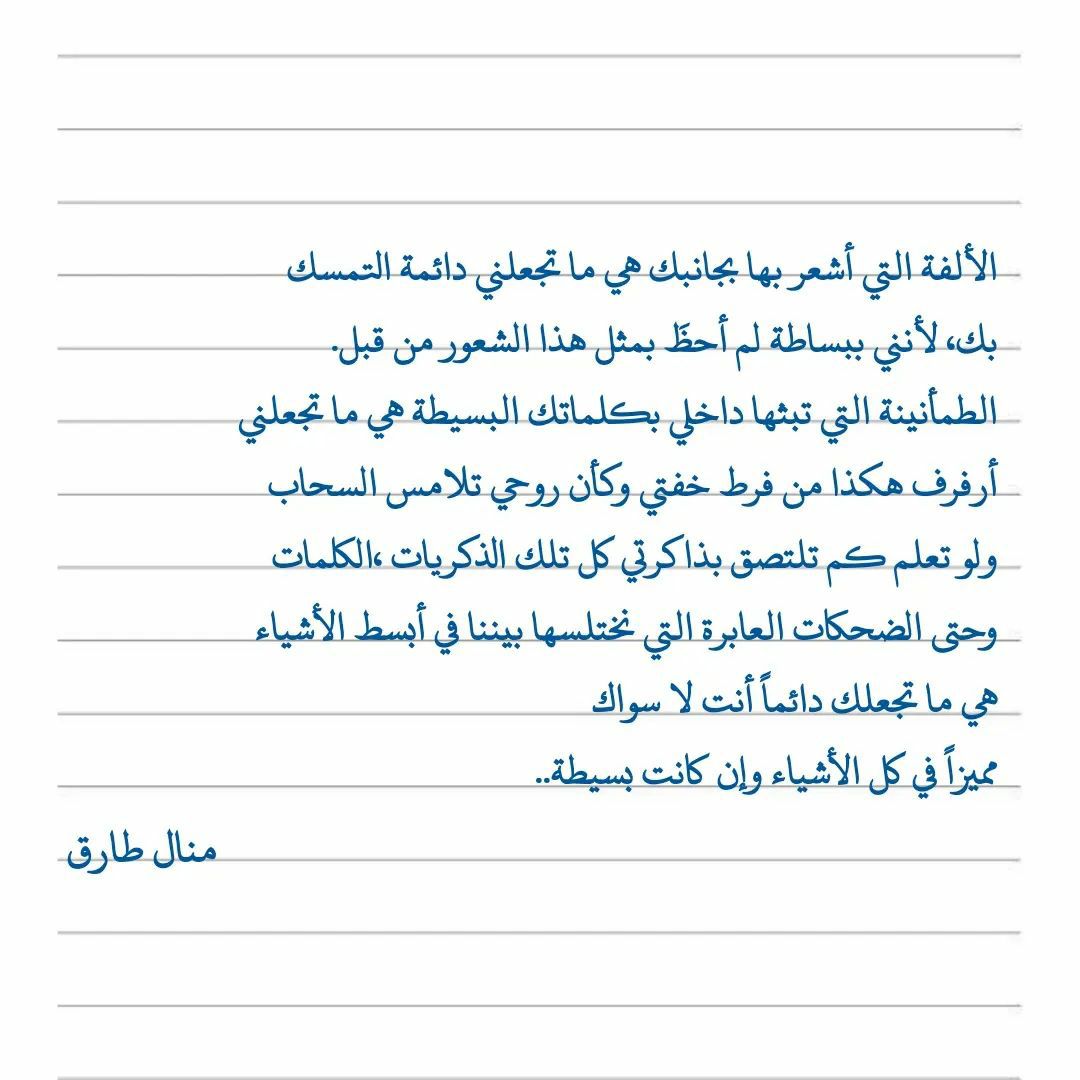 الألفة التي أشعر بها بجانبك هي ما تجعلني دائمة التمسك
بك، لأنني ببساطة لم أحظَ بمثل هذا الشعور من قبل.
الطمأنينة التي تبثها داخلي بكلماتك البسيطة هي ما تجعلني
أرفرف هكذا من فرط خفتي وكأن روحي تلامس السحاب
ولو تعلم كم تلتصق بذاكرتي كل تلك الذكريات ،الكلمات
وحتى الضحكات العابرة التي نختلسها بيننا في أبسط الأشياء
هي ما تجعلك دائماً أنت لا سواك
مميزاً في كل الأشياء وإن كانت بسيطة..
منال طارق